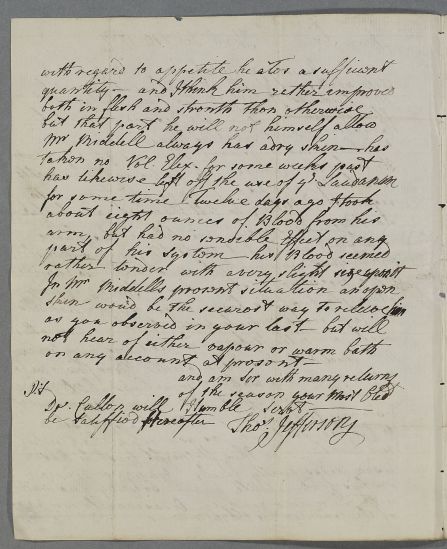 with regard to appetite he ates a suffiecnt
quantity - and I think him rether improved
both in flesh and stronth than otherwise
but that part he will not himself allow
Mr Middell always has a dry skin - has
taken no Vol Elix. for some weeks past
has likewise left off the use of ye Laudanum
for some time Twelve days ago I took
about eight ounces of Blood from his
arm, but had no sensible Effect on any
part of his system his Blood seemed
rather tender with a very slight
In Mr Middells present situation an open
skin would be the securest way to releive him
as you observed in your last but will
not hear of either vapour or warm bath
on any account at prosont
and am Sir with many returns
of the season your Most Obed
Humble Servt
Thos. Jefferson
Dr. Cullen will
be satisfied hereafter